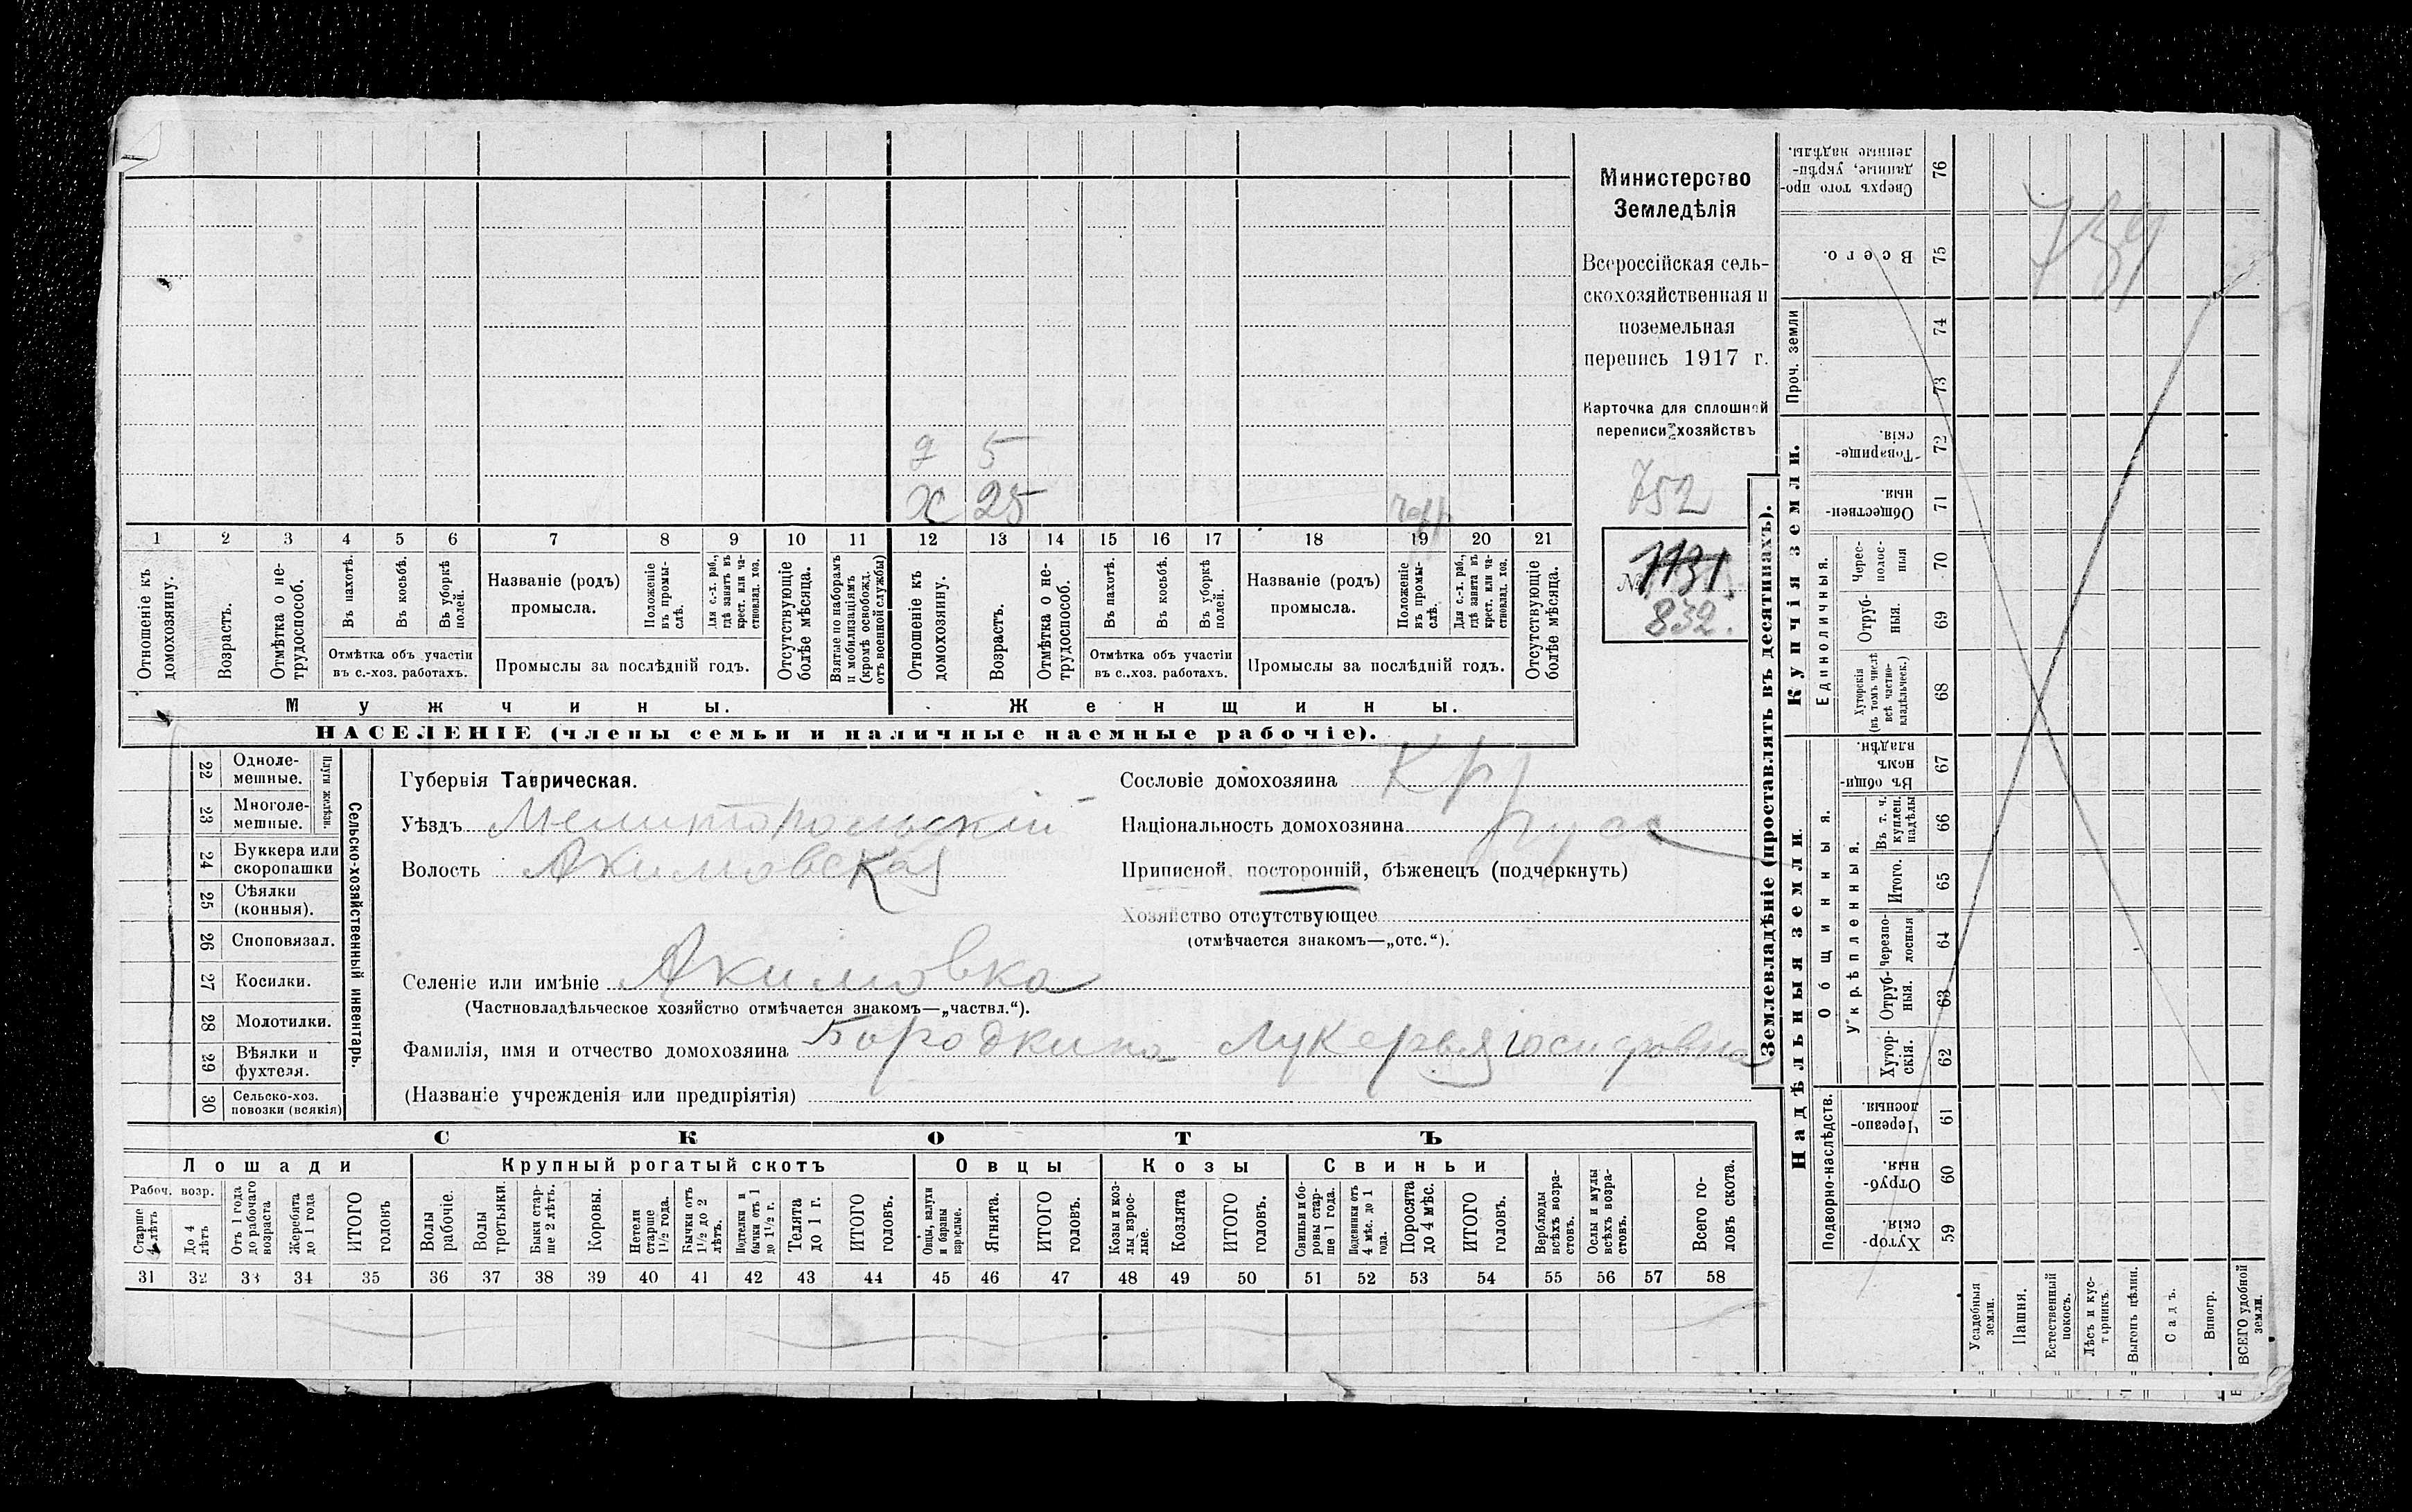 Министерство
Земледѣлія
Всероссійская сель-
скохозяйственная и
поземельная
перепись 1917 г.
Карточка для сплошной
переписи хозяйствъ
752
№ 1131.
832.
739
д 5
х 25
1 2 3 4 5 6 7 8 9 10 11 12 13 14 15 16 17 18 19 20 21
Отношеніе къ домохозяину.
Возрастъ.
Отмѣтка о не-трудоспособ.
Въ пахотѣ.
Въ косьбѣ.
Въ уборкѣ полей.
Отмѣтка объ участіи
въ с.-хоз. работахъ.
Названіе (родъ)
промысла.
Положеніе въ промы-слѣ.
Для с.-х. раб., гдѣ занятъ въ крест. или ча-стновлад. хоз.
Промыслы за послѣдній годъ.
Отсутствующіе болѣе мѣсяца.
Взятые по наборамъ и мобилизаціямъ (кромѣ освобожд. отъ военной службы)
Отношеніе къ домохозяину.
Возрастъ.
Отмѣтка о не-трудоспособ.
Въ пахотѣ.
Въ косьбѣ.
Въ уборкѣ полей.
Отмѣтка объ участіи
въ с..хоз. работахъ.
Названіе (родъ)
промысла.
Положеніе въ промы-слѣ.
Для с.-х. раб., гдѣ занята въ крест. или ча-стновлад. хоз.
Промыслы за послѣдній годъ.
Отсутствующіе болѣе мѣсяца.
Мужчины.
Женщины.
НАСЕЛЕНІЕ (члены семьи и наличные наемные рабочіе).
22 Одноле-мешные.
23 Многоле-мешные.
Плуги желѣзн.
24 Буккера или скоропашки
25 Сѣялки (конныя).
26 Сноповязал.
27 Косилки.
28 Молотилки.
29 Вѣялки и фухтеля.
30 Сельско-хоз. повозки (всякія)
Сельско-хозяйственный инвентарь.
Губернія Таврическая.
Уѣздъ Мелитопольскій
Волость Акимовская
Селеніе или имѣніе Акимовка
(Частновладѣльческое хозяйство отмѣчается знакомъ—„частвл.“).
Фамилія, имя и отчество домохозяина Бородкина Лукерья Іосифовна
(Названіе учрежденія или предпріятія)
Сословіе домохозяина Кр
Національность домохозяина русс
Приписной, посторонній, бѣженецъ (подчеркнуть)
Хозяйство отсутствующее
(отмѣчается знакомъ—„отс.“).
СКОТЪ
Лошади
Крупный рогатый скотъ
Овцы
Козы
Свиньи
Рабоч. возр.
Старше 4 лѣтъ
До 4 лѣтъ
Отъ 1 года до рабочаго возраста
Жеребята до 1 года
ИТОГО головъ
Волы рабочіе.
Волы третьяки.
Быки стар-ше 2 лѣтъ.
Коровы.
Нетели старше 1½ года.
Бычки отъ 1½ до 2 лѣтъ.
Подтелки и бычки отъ 1 до 1½ г.
Телята до 1 г.
ИТОГО головъ.
Овцы, валухи и бараны взрослые.
Ягнята.
ИТОГО головъ.
Козы и коз-лы взрос-лые.
Козлята
ИТОГО головъ.
Свиньи и бо-ровы стар-ше 1 года.
Подсвинки отъ 4 мѣс. до 1 года.
Поросята до 4 мѣс.
ИТОГО головъ.
Верблюды всѣхъ возра-стовъ.
Ослы и мулы всѣхъ возра-стовъ.
Всего го-ловъ скота.
31 32 33 34 35 36 37 38 39 40 41 42 43 44 45 46 47 48 49 50 51 52 53 54 55 56 57 58
Землевладѣніе (проставлять въ десятинахъ).
Надѣльныя земли.
Купчія земли.
Подворно-наслѣдств.
Общинныя.
Укрѣпленныя.
Единоличныя.
Проч. земли
Сверхъ того про-данные, укрѣп-ленные надѣлы. 76
Всего. 75
74
73
Товарище-скія. 72
Обществен-ныя. 71
Черес-полос-ныя 70
Отруб-ныя. 69
Хуторскія (въ томъ числѣ всѣ частно-владѣльческ.) 68
Въ общин-номъ владѣн. 67
Въ т. ч. куплен. надѣлы 66
Итого. 65
Черезпо-лосныя 64
Отруб-ныя. 63
Хутор-скія. 62
Черезпо-лосныя. 61
Отруб-ныя. 60
Хутор-скія. 59
Усадебныя земли.
Пашня.
Естественный покосъ.
Лѣсъ и кус-тарникъ.
Выгонъ цѣлин.
Садъ.
Виногр.
ВСЕГО удобной земли.